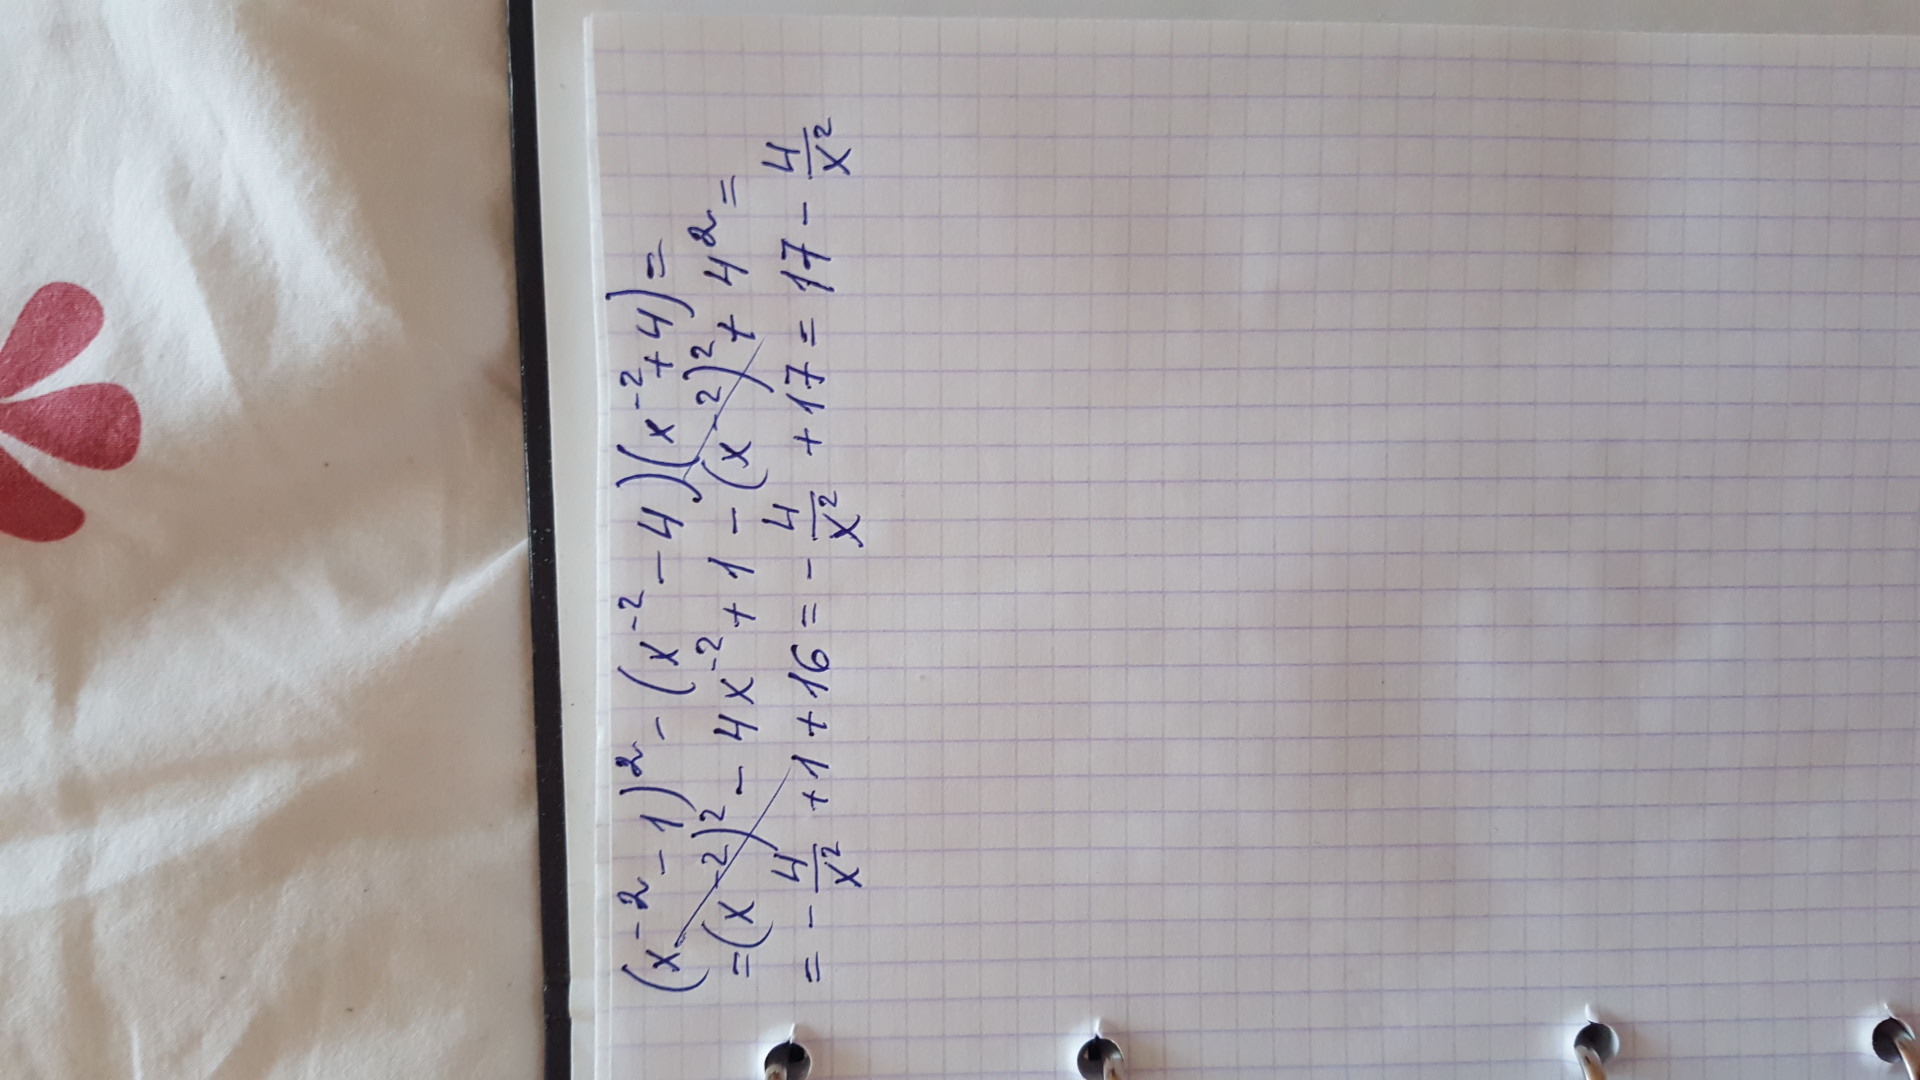 (x⁻² - 1)² - (x⁻² - 4)(x⁻² + 4) =
= (x⁻²)² - 4x⁻² + 1 - (x⁻²)² + 4² =
= - 4/x² + 1 + 16 = - 4/x² + 17 = 17 - 4/x²